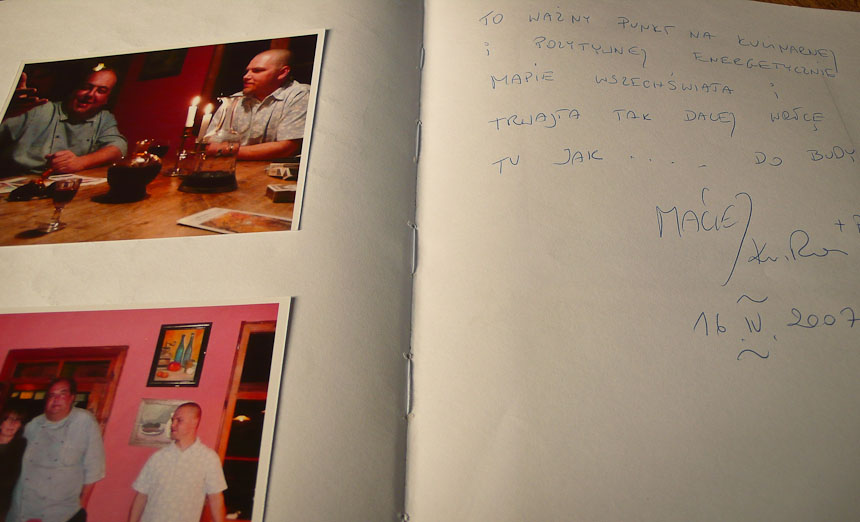 TO WAŻNY PUNKT NA KULINARNEJ
i POZYTYWNEJ ENERGETYCZNIE
MAPIE WSZECHŚWIATA i
TRWAJTA TAK DALEJ WRÓCĘ
TU JAK ..... DO BUDY
MACIEJ
16 IV. 2007